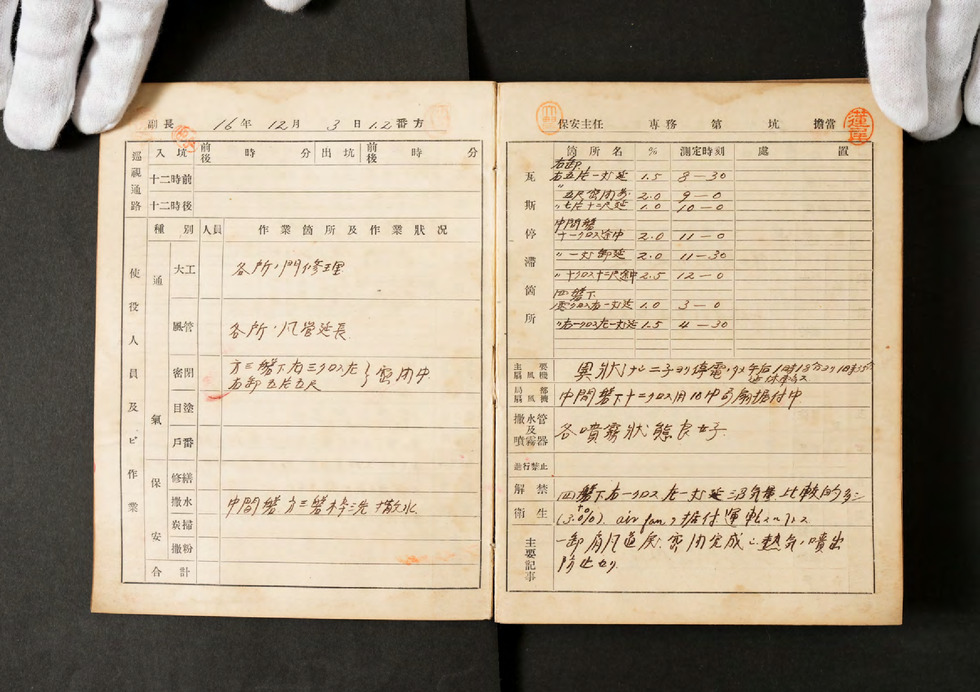 副長 16年 12月 3日 1.2番方
巡視通路
入坑 前後 時 分 出坑 前後 時 分
十二時前
十二時後
使役人員及ビ作業
種別 人員 作業箇所及作業狀況
通氣
大工 各所ノ門修理
風管 各所ノ風管延長
密閉 方三盤下右三クロス左
右卸五片五尺 密閉中
目塗
戶番
保安
修繕
撒水 中間盤 方三盤枠洗撒水
炭掃
撒粉
合計
保安主任 専務 第 坑 擔當
瓦斯停滯箇所
箇所名 % 測定時刻 處置
右卸
右五片一灯延 1.5 8-30
〃 五尺密閉前 2.0 9-0
〃 七片十二尺延 1.0 10-0
中間盤
十一クロス途中 2.0 11-0
〃 一灯卸延 2.0 11-30
〃 十クロス十三尺途中 2.5 12-0
四盤下
クロス右一灯延 1.0 3-0
〃 右一クロス左一灯延 1.5 4-30
主要扇風機 異狀ナシ 停電ノタメ午后1時18分ヨリ1時35分
局部扇風機 中間盤下十二クロス用10HP局扇据付中
撒水管及噴霧器 各噴霧狀態良好
進行禁止
解禁
衛生
四盤下右一クロス左一灯延 沼気量比較的多シ
(3.0%) air fanヲ据付運転
主要記事
一卸肩風道戻密閉完成シ熱気ノ噴出
防止